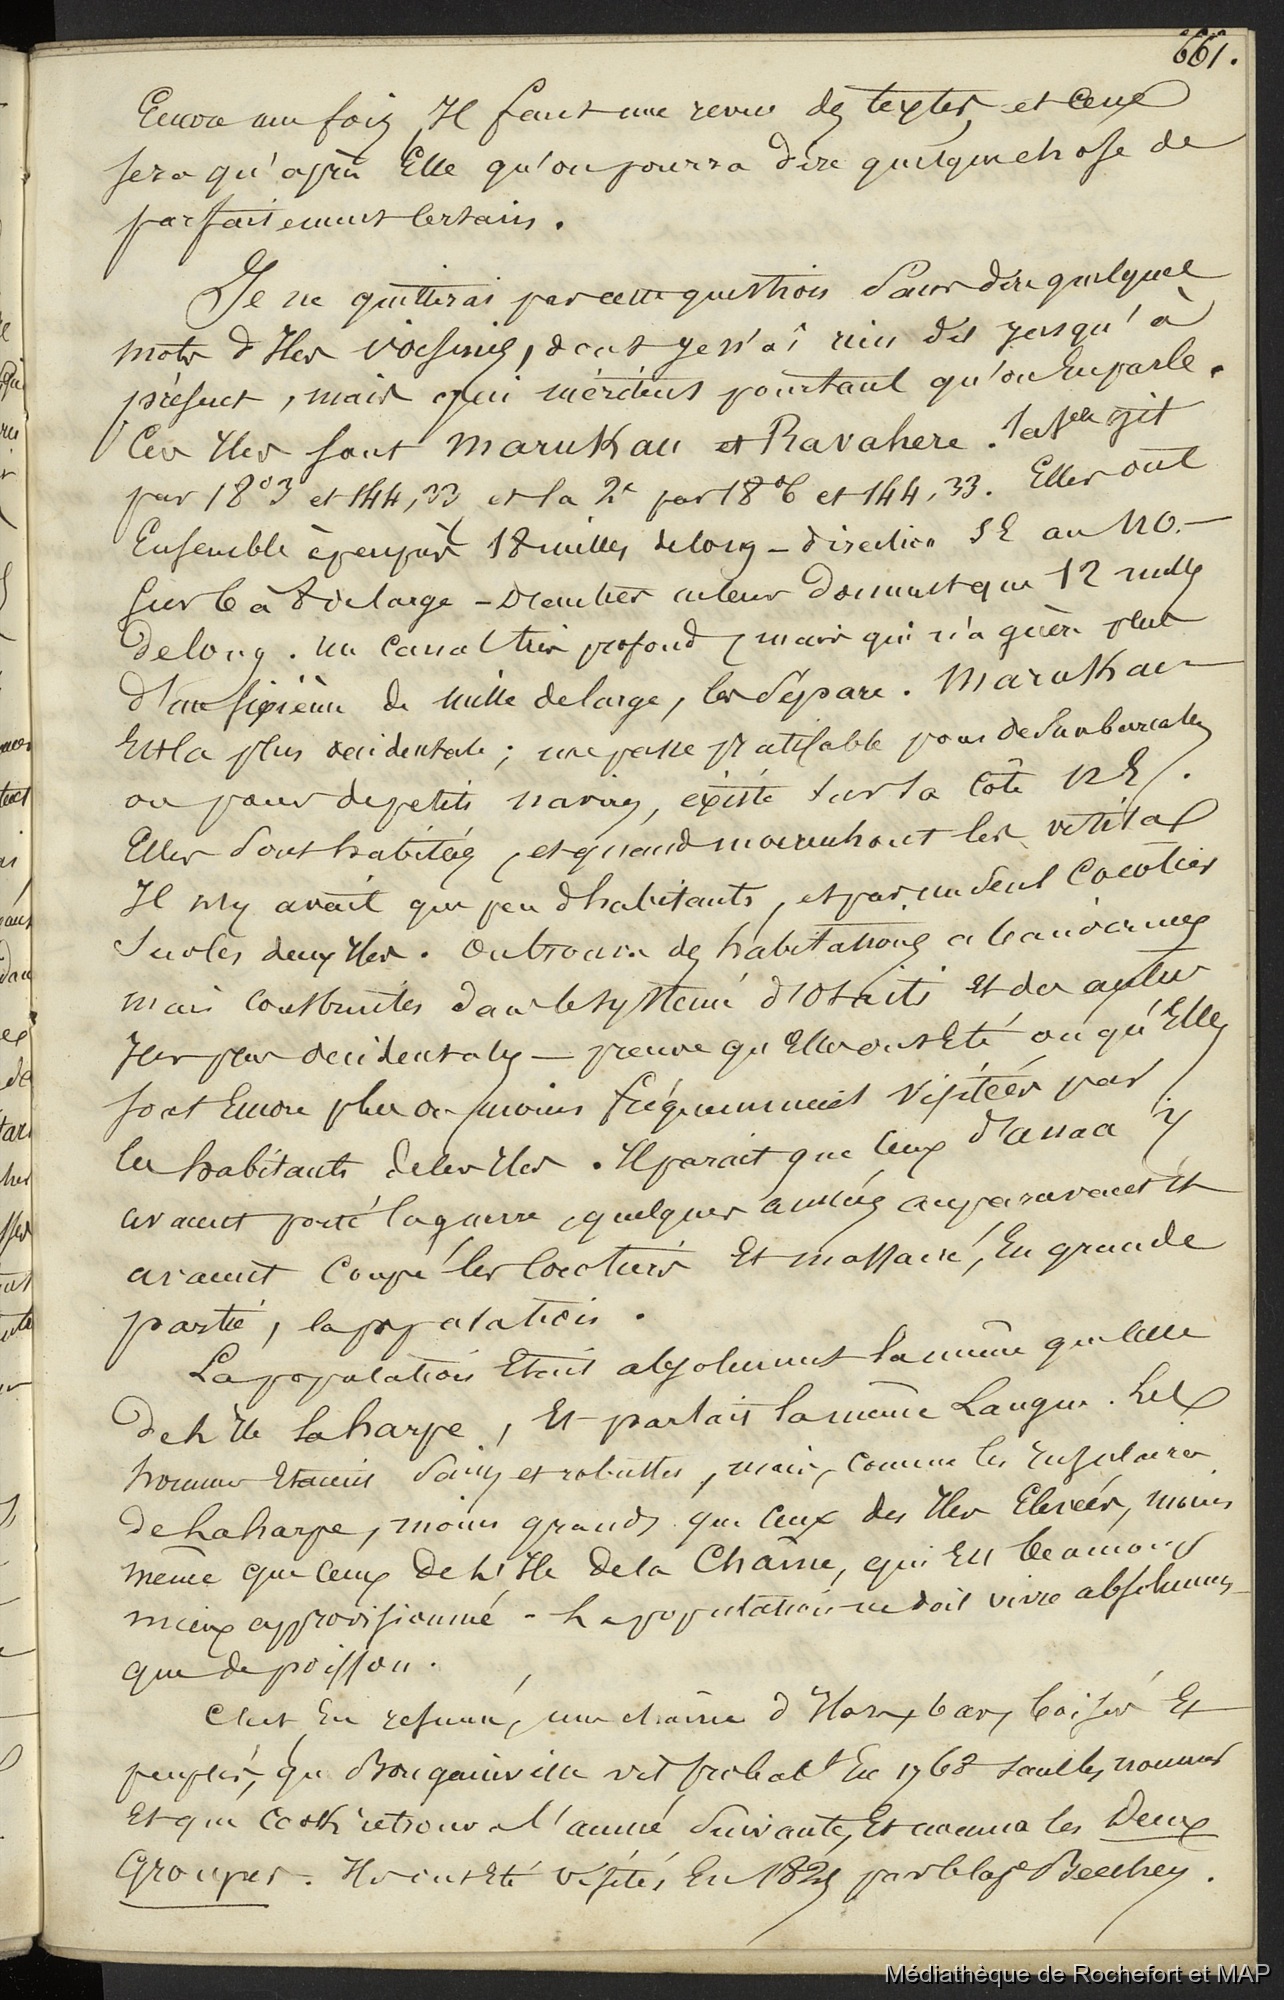 661.
Encore une fois, Il faut une revue des textes, et ce ne
sera qu'après Elle qu'on pourra dire quelque chose de
parfaitement certain.
Je ne quitterai pas cette question sans dire quelques
mots d'Iles voisines, dont je n'ai rien dit jusqu'à
présent, mais qui méritent pourtant qu'on En parle.
Ces Iles sont MaruKau et Ravahere. La 1ere gît
par 18°3 et 144,33 et la 2e par 18°6 et 144,33. Elles ont
Ensemble à peu près 18 milles de long – direction SE au NO. –
sur 6 à 8 de large – D'autres ne leur donnent que 12 milles
de long. Un canal très profond, mais qui n'a guère plus
d'un sixième de mille de large, les sépare. MaruKau
Est la plus occidentale; une passe praticable pour des Embarcations
ou pour de petits navires, existe sur la côte NE.
Elles sont habitées, et quand moerenhout les visita
Il n'y avait que peu d'habitants, et pas un seul Cocotier
sur les deux Iles. On trouva des habitations abandonnées
mais construites dans le système d'Otaiti et des autres
Iles plus occidentales – preuve qu'Elles ont Eté ou qu'Elles
sont Encore plus ou moins fréquemment visitées par
les habitants de les Iles. Il parait que ceux d'anaa y
avaient porté la guerre, quelques années auparavant Et
avaient coupé les Cocotiers Et massacré, En grande
partie, la population.
La population Etait absolument la même que celle
de L'Ile La harpe, Et parlait la même Langue. Les
hommes Etaient sains et robustes, mais, comme les Insulaires
de La harpe, moins grands que ceux des Iles Elevées, moins
même que ceux de L'Ile de la Chaîne, qui Est beaucoup
mieux approvisionné – La population ne doit vivre absolument
que de poisson.
C'est En résumé, une chaîne d'Iles, bas, boisés Et
peuplés, que Bougainville vit probablt En 1768 sans les nommer
Et que Cook retrouva l'année suivante, Et nomma les Deux
Groupes. Ils ont Eté visités En 182 par le Cape Beechey.
Médiathèque de Rochefort et MAP